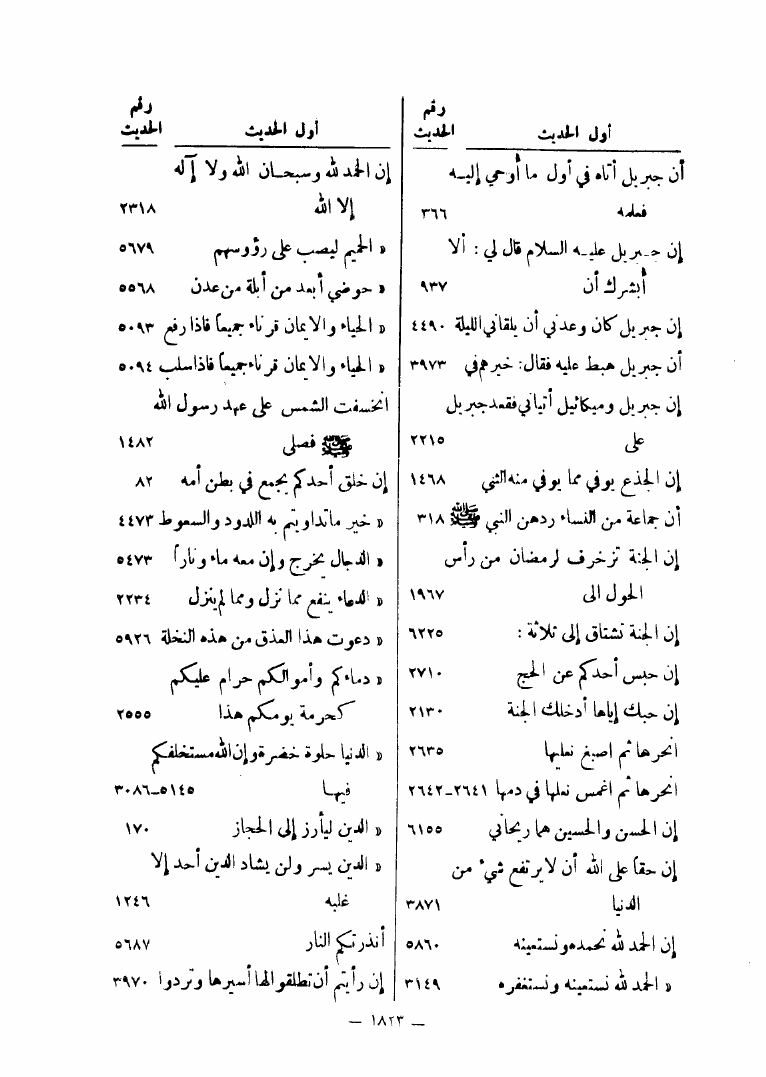 أول الحديث رقم الحديث
أن جبريل أتاه في أول ما أُوحي إليه
فعلمه ٣٦٦
إن جبريل عليه السلام قال لي : ألا
أُبشرك أن ٩٣٧
إن جبريل كان وعدني أن يلقاني الليلة ٤٤٩٠
أن جبريل هبط عليه فقال: خيرهم في ٣٩٧٣
إن جبريل وميكائيل أتياني فقعد جبريل
على ٢٢١٥
إن الجذع يوفي مما يوفي منه الثني ١٤٦٨
أن جماعة من النساء ردهن النبي ﷺ ٣١٨
إن الجنة تزخرف لرمضان من رأس
الحول الى ١٩٦٧
إن الجنة تشتاق إلى ثلاثة : ٦٢٢٥
إن حبس أحدكم عن الحج ٢٧١٠
إن حبك إياها أدخلك الجنة ٢١٣٠
انحرها ثم اصبغ نعليها ٢٦٣٥
انحرها ثم اغمس نعلها في دمها ٢٦٤١-٢٦٤٢
إن الحسن والحسين هما ريحاني ٦١٥٥
إن حقاً على الله أن لا يرتفع شيء من
الدنيا ٣٨٧١
إن الحمد لله نحمده ونستعينه ٥٨٦٠
« الحمد لله نستعينه ونستغفره ٣١٤٩
أول الحديث رقم الحديث
إن الحمد لله وسبحان الله ولا إله
إلا الله ٢٣١٨
« الحميم ليصب على رؤوسهم ٥٦٧٩
« حوضي أبعد من أيلة من عدن ٥٥٦٨
« الحياء والايمان قرناء جميعاً فاذا رفع ٥٠٩٣
« الحياء والايمان قرناء جميعاً فاذا سلب ٥٠٩٤
انخسفت الشمس على عهد رسول الله
ﷺ فصلى ١٤٨٢
إن خلق أحدكم يجمع في بطن أمه ٨٢
« خير ما تداويتم به اللدود والسعوط ٤٤٧٣
« الدجال يخرج وإن معه ماء وناراً ٥٤٧٣
« الدعاء ينفع مما نزل ومما لم ينزل ٢٢٣٤
« دعوت هذا العذق من هذه النخلة ٥٩٢٦
« دماءكم وأموالكم حرام عليكم
كحرمة يومكم هذا ٢٥٥٥
« الدنيا حلوة خضرة وإن الله مستخلفكم
فيها ٥١٤٥-٣٠٨٦
« الدين ليأرز إلى الحجاز ١٧٠
« الدين يسر ولن يشاد الدين أحد إلا
غلبه ١٢٤٦
أنذرتكم النار ٥٦٨٧
إن رأيتم أن تطلقوا لها أسيرها وتردوا ٣٩٧٠
— ١٨٢٣ —